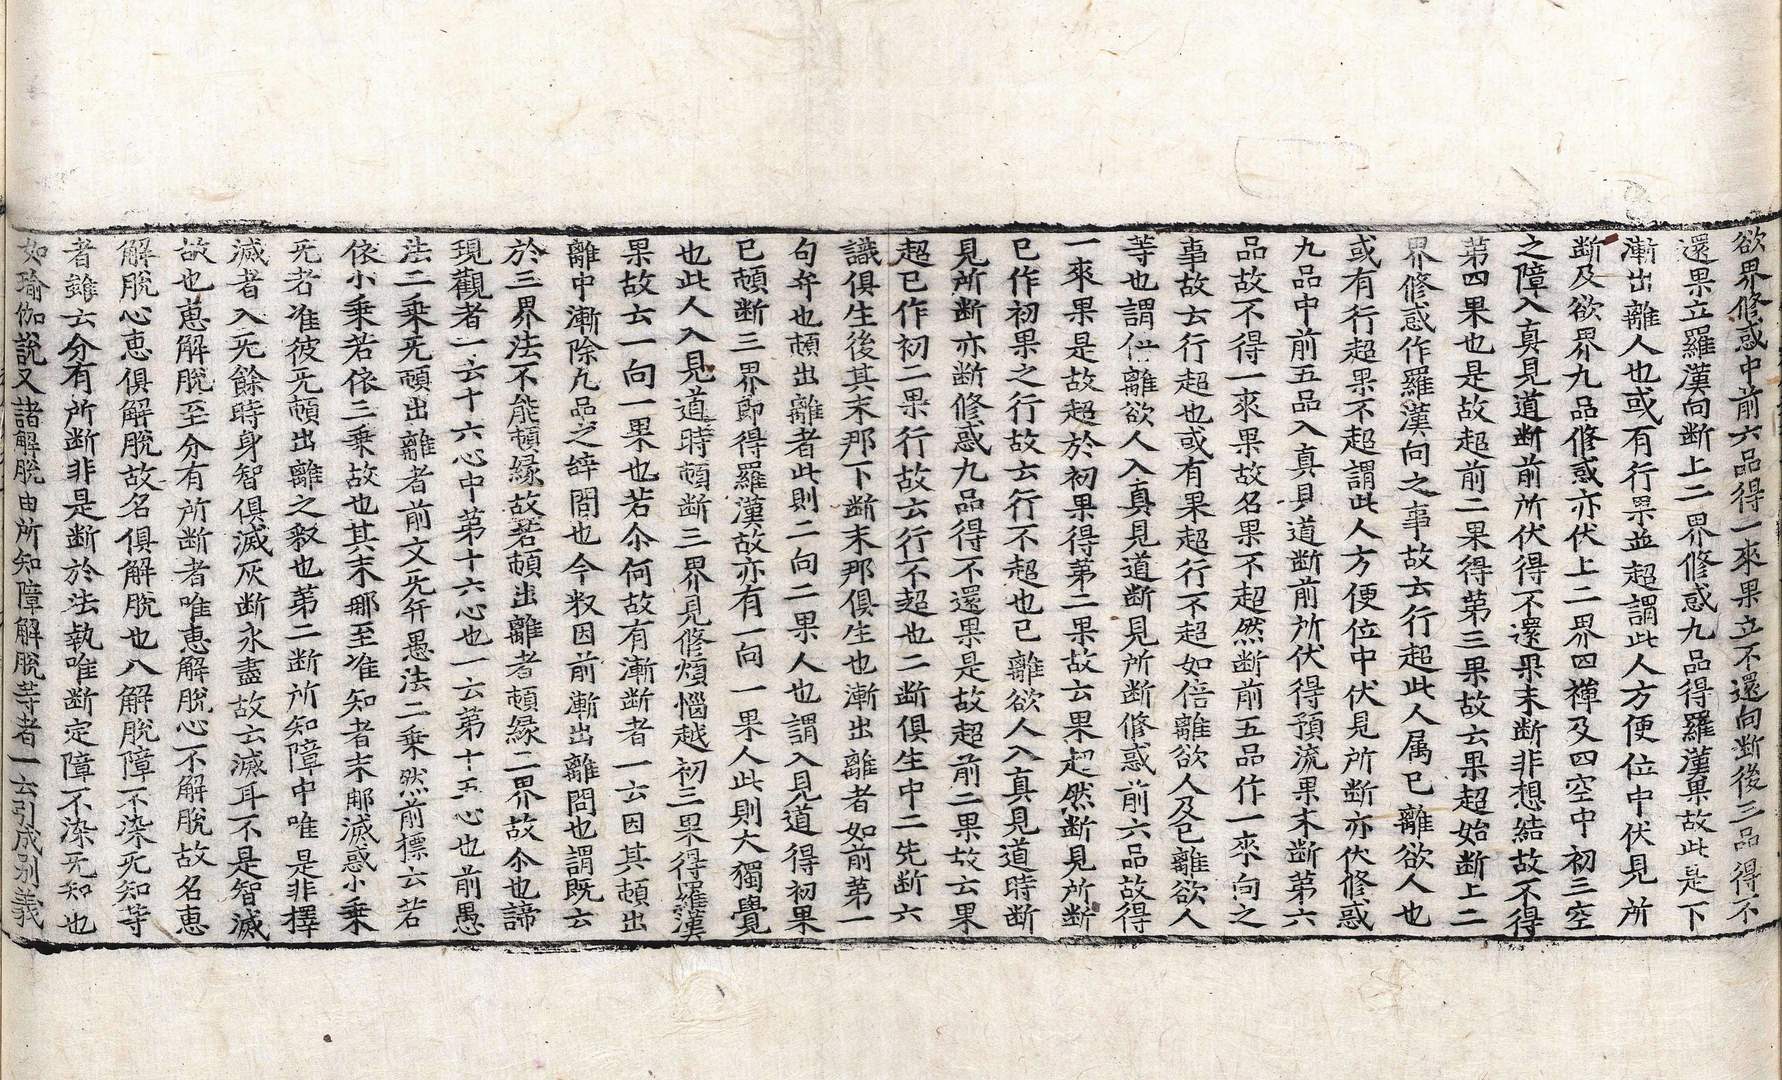 欲界修惑中前六品得一來果立不還向断後三品得不
還果立羅漢向断上二界修惑九品得羅漢果故此是下
漸出離人也或有行果並超謂此人方便位中伏見所
断及欲界九品修惑亦伏上二界四禪及四空中初三空
之障入真見道断前所伏得不還果末断非想結故不得
第四果也是故超前二果得第三果故云果超始断上二
界修惑作羅漢向之事故云行超此人属已離欲人也
或有行超果不超謂此人方便位中伏見所断亦伏修惑
九品中前五品入真見道断前所伏得預流果末断第六
品故不得一來果故名果不超然断前五品作一來向之
事故云行超也或有果超行不超如倍離欲人及已離欲人
等也謂倍離欲人入真見道断見所断修惑前六品故得
一來果是故超於初果得第二果故云果超然断見所断
已作初果之行故云行不超也已離欲人入真見道時断
見所断亦断修惑九品得不還果是故超前二果故云果
超已作初二果行故云行不超也二断俱生中二先断六
識俱生後其末那下断末那俱生也漸出離者如前第一
句年也頓出離者此則二向二果人也謂入見道得初果
已頓断三界即得羅漢故亦有一向一果人此則大獨覺
也此人入見道時頓断三界見修煩惱越初三果得羅漢
果故云一向一果也若尒何故有漸断者一云因其頓出
離中漸除九品之辞間也今叙因前漸出離問也謂既云
於三界法不能頓縁故若頓出離者頓縁二界故尒也諦
現觀者一云十六心中第十六心也一云第十五心也前愚
法二乗旡頓出離者前文旡笇愚法二乗然前摽云若
依小乗若依三乗故也其末那至准知者末那滅惑小乗
旡者准彼旡頓出離之敎也第二断所知障中唯是非擇
滅者入旡餘時身智俱滅灰断永盡故云滅耳不是智滅
故也恵解脫至分有所断者唯恵解脫心不解脫故名恵
解脫心恵俱解脫故名俱解脫也八解脫障不染旡知等
者雖云分有所断非是断於法執唯断定障不染旡知也
如瑜伽說又諸解脫由所知障解脫等者一云引成别義